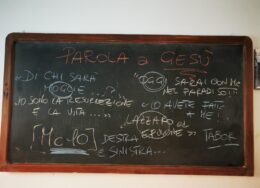 PAROLA a GESÙ
"DI CHI SARÀ
"OGGI SARAI CON ME
NEL PARADISO!"
"IO SONO LA RESURREZIONE
E LA VITA...
"LO AVETE FATTO
A ME!
"LAZZARO
[Mc-10]
DESTRA
E SINISTRA...
TABOR